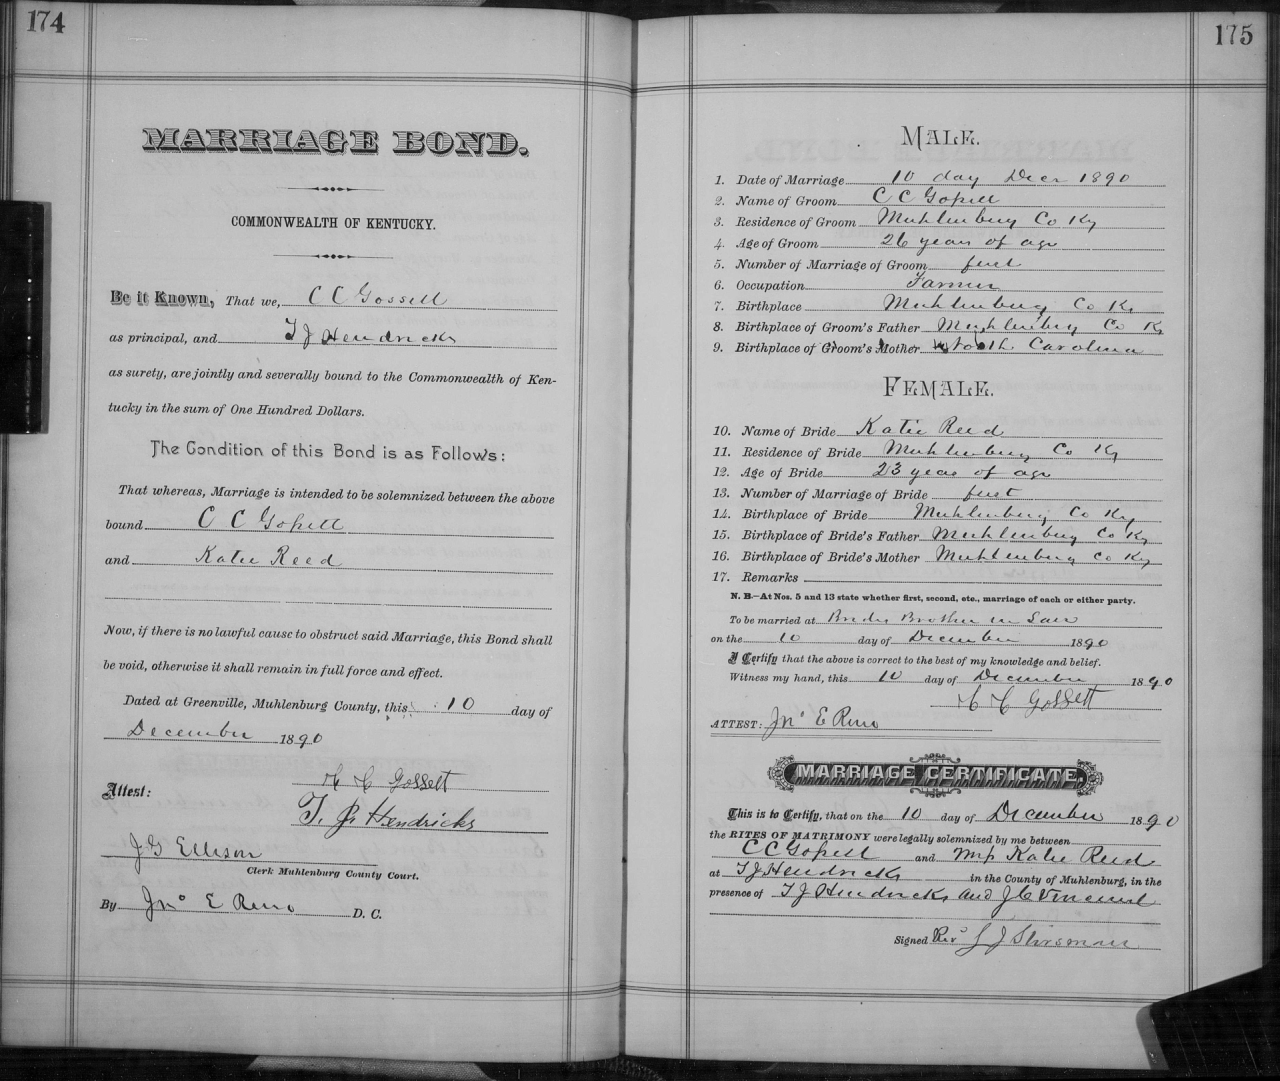 174
MARRIAGE BOND.
COMMONWEALTH OF KENTUCKY.
Be it Known, That we, C C Gossett
as principal, and T J Hendricks
as surety, are jointly and severally bound to the Commonwealth of Ken-
tucky in the sum of One Hundred Dollars.
The Condition of this Bond is as Follows:
That whereas, Marriage is intended to be solemnized between the above
bound C C Goſsett
and Katie Reed
Now, if there is no lawful cause to obstruct said Marriage, this Bond shall
be void, otherwise it shall remain in full force and effect.
Dated at Greenville, Muhlenburg County, this 10 day of
December 1890
C C Gossett
Attest:
T. J. Hendricks
J G Ellison
Clerk Muhlenburg County Court.
By Jno E Reno D. C.
175
MALE.
1. Date of Marriage 10 day Decr 1890
2. Name of Groom C C Goſsett
3. Residence of Groom Muhlenburg Co Ky
4. Age of Groom 26 years of age
5. Number of Marriage of Groom first
6. Occupation Farmer
7. Birthplace Muhlenburg Co Ky
8. Birthplace of Groom's Father Muhlenburg Co Ky
9. Birthplace of Groom's Mother North Carolina
FEMALE.
10. Name of Bride Katie Reed
11. Residence of Bride Muhlenburg Co Ky
12. Age of Bride 23 years of age
13. Number of Marriage of Bride first
14. Birthplace of Bride Muhlenburg Co Ky
15. Birthplace of Bride's Father Muhlenburg Co Ky
16. Birthplace of Bride's Mother Muhlenburg Co Ky
17. Remarks
N. B.—At Nos. 5 and 13 state whether first, second, etc., marriage of each or either party.
To be married at Brides Brother in Law
on the 10 day of December 1890
I Certify that the above is correct to the best of my knowledge and belief.
Witness my hand, this 10 day of December 1890
C C Gossett
ATTEST: Jno E Reno
MARRIAGE CERTIFICATE.
This is to Certify, that on the 10 day of December 1890
the RITES OF MATRIMONY were legally solemnized by me between
C C Goſsett and Miſs Katie Reed
at T J Hendricks in the County of Muhlenburg, in the
presence of T J Hendricks and J C Vincent
Signed Rev